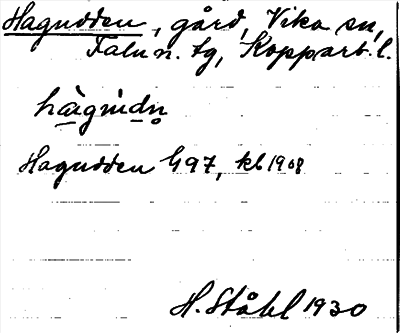 Hagudden, gård, Vika sn,
Falu n. tg, Kopparb. l.
hàgùdn̥
Hagudden G97, kb 1908
H. Ståhl 1930